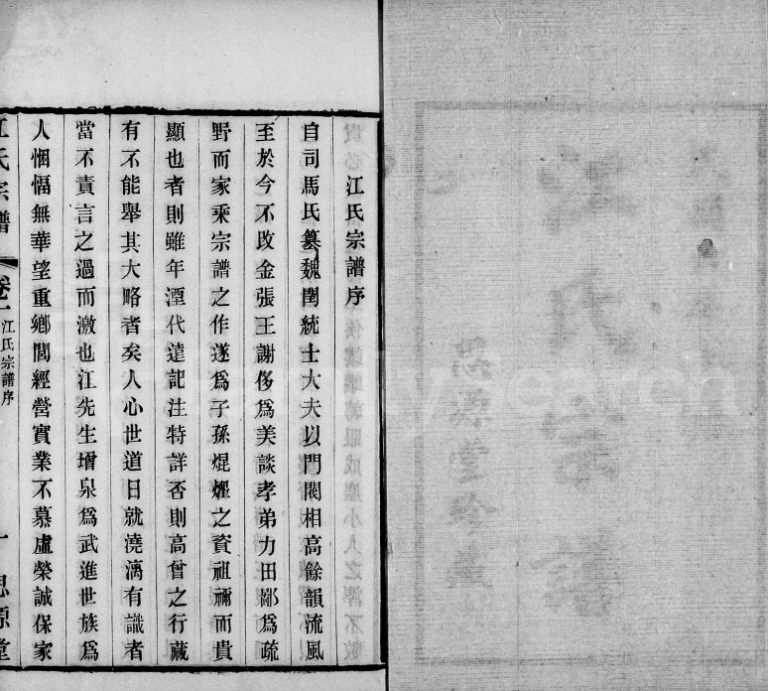 江氏宗譜序
自司馬氏纂魏閏統士大夫以門閥相高餘韻流風
至於今不改金張王謝侈爲美談孝弟力田鄙爲疏
野而家乘宗譜之作遂爲子孫焜燿之資祖禰而貴
顯也者則雖年湮代遠記注特詳否則高曾之行藏
有不能舉其大略者矣人心世道日就澆漓有識者
當不責言之過而激也江先生增泉爲武進世族爲
人悃愊無華望重鄉閭經營實業不慕虛榮誠保家
江氏宗譜
卷一
江氏宗譜序
一
思源堂
思源堂珍藏